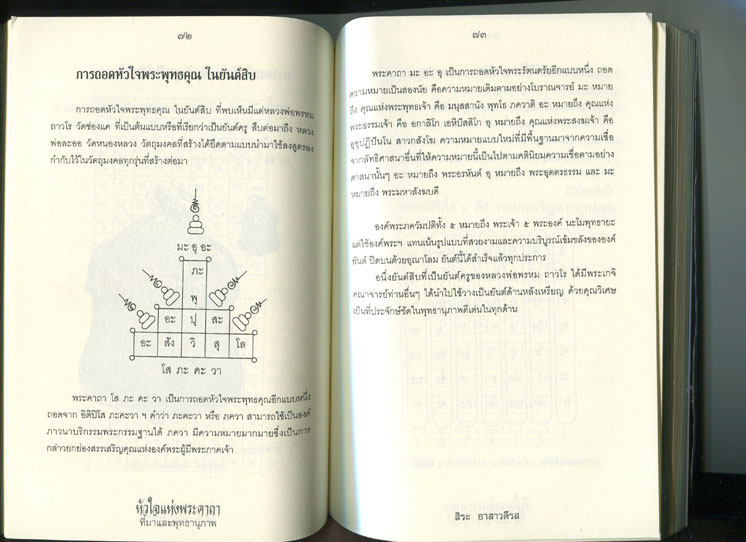 ๗๒
การถอดหัวใจพระพุทธคุณ ในยันต์สิบ
การถอดหัวใจพระพุทธคุณ ในยันต์สิบ ที่พบเห็นมีแต่หลวงพ่อพรหม
ถาวโร วัดช่องแค ที่เป็นต้นแบบหรือที่เรียกว่าเป็นยันต์ครู สืบต่อมาถึง หลวง
พ่อละออ วัดหนองหลวง วัตถุมงคลที่สร้างได้ยึดตามแบบนำมาใช้ลงสูตรลง
กำกับไว้ในวัตถุมงคลทุกรุ่นที่สร้างต่อมา
มะ อุ อะ
ภะ
พุ
อะ ปุ สะ
อะ สัง วิ สุ โล
โส ภะ คะ วา
พระคาถา โส ภะ คะ วา เป็นการถอดหัวใจพระพุทธคุณอีกแบบหนึ่ง
ถอดจาก อิติปิโส ภะคะวา ฯ คำว่า ภะคะวา หรือ ภควา สามารถใช้เป็นองค์
ภาวนาบริกรรมพระกรรมฐานได้ ภควา มีความหมายมากมายซึ่งเป็นการ
กล่าวยกย่องสรรเสริญคุณแห่งองค์พระผู้มีพระภาคเจ้า
หัวใจแห่งพระคาถา
ที่มาและพุทธานุภาพ
๗๓
พระคาถา มะ อะ อุ เป็นการถอดหัวใจพระรัตนตรัยอีกแบบหนึ่ง ถอด
ความหมายเป็นสองนัย คือความหมายเดิมตามอย่างโบราณจารย์ มะ หมาย
ถึง คุณแห่งพระพุทธเจ้า คือ มนุสสานัง พุทโธ ภควาติ อะ หมายถึง คุณแห่ง
พระธรรมเจ้า คือ อกาลิโก เอหิปัสสิโก อุ หมายถึง คุณแห่งพระสงฆเจ้า คือ
อุชุปฏิปันโน สาวกสังโฆ ความหมายแบบใหม่ที่มีพื้นฐานมาจากความเชื่อ
จากลัทธิศาสนาอื่นที่ให้ความหมายนี้เป็นไปตามคตินิยมความเชื่อตามอย่าง
ศาสนานั้นๆ อะ หมายถึง พระอรหันต์ อุ หมายถึง พระอุตตรธรรม และ มะ
หมายถึง พระมหาสังฆบดี
องค์พระภควัมปติทั้ง ๕ หมายถึง พระเจ้า ๕ พระองค์ นะโมพุทธายะ
แต่ใช้องค์พระฯ แทนเน้นรูปแบบที่สวยงามและความบริบูรณ์เข้มขลังขององค์
ยันต์ ปิดบนด้วยอุณาโลม ยันต์นี้ได้สำเร็จแล้วทุกประการ
อนึ่งยันต์สิบที่เป็นยันต์ครูของหลวงพ่อพรหม ถาวโร ได้มีพระเกจิ
คณาจารย์ท่านอื่นๆ ได้นำไปใช้วางเป็นยันต์ด้านหลังเหรียญ ด้วยคุณวิเศษ
เป็นที่ประจักษ์ชัดในพุทธานุภาพดีเด่นในทุกด้าน
สิระ อาสาวดีรส